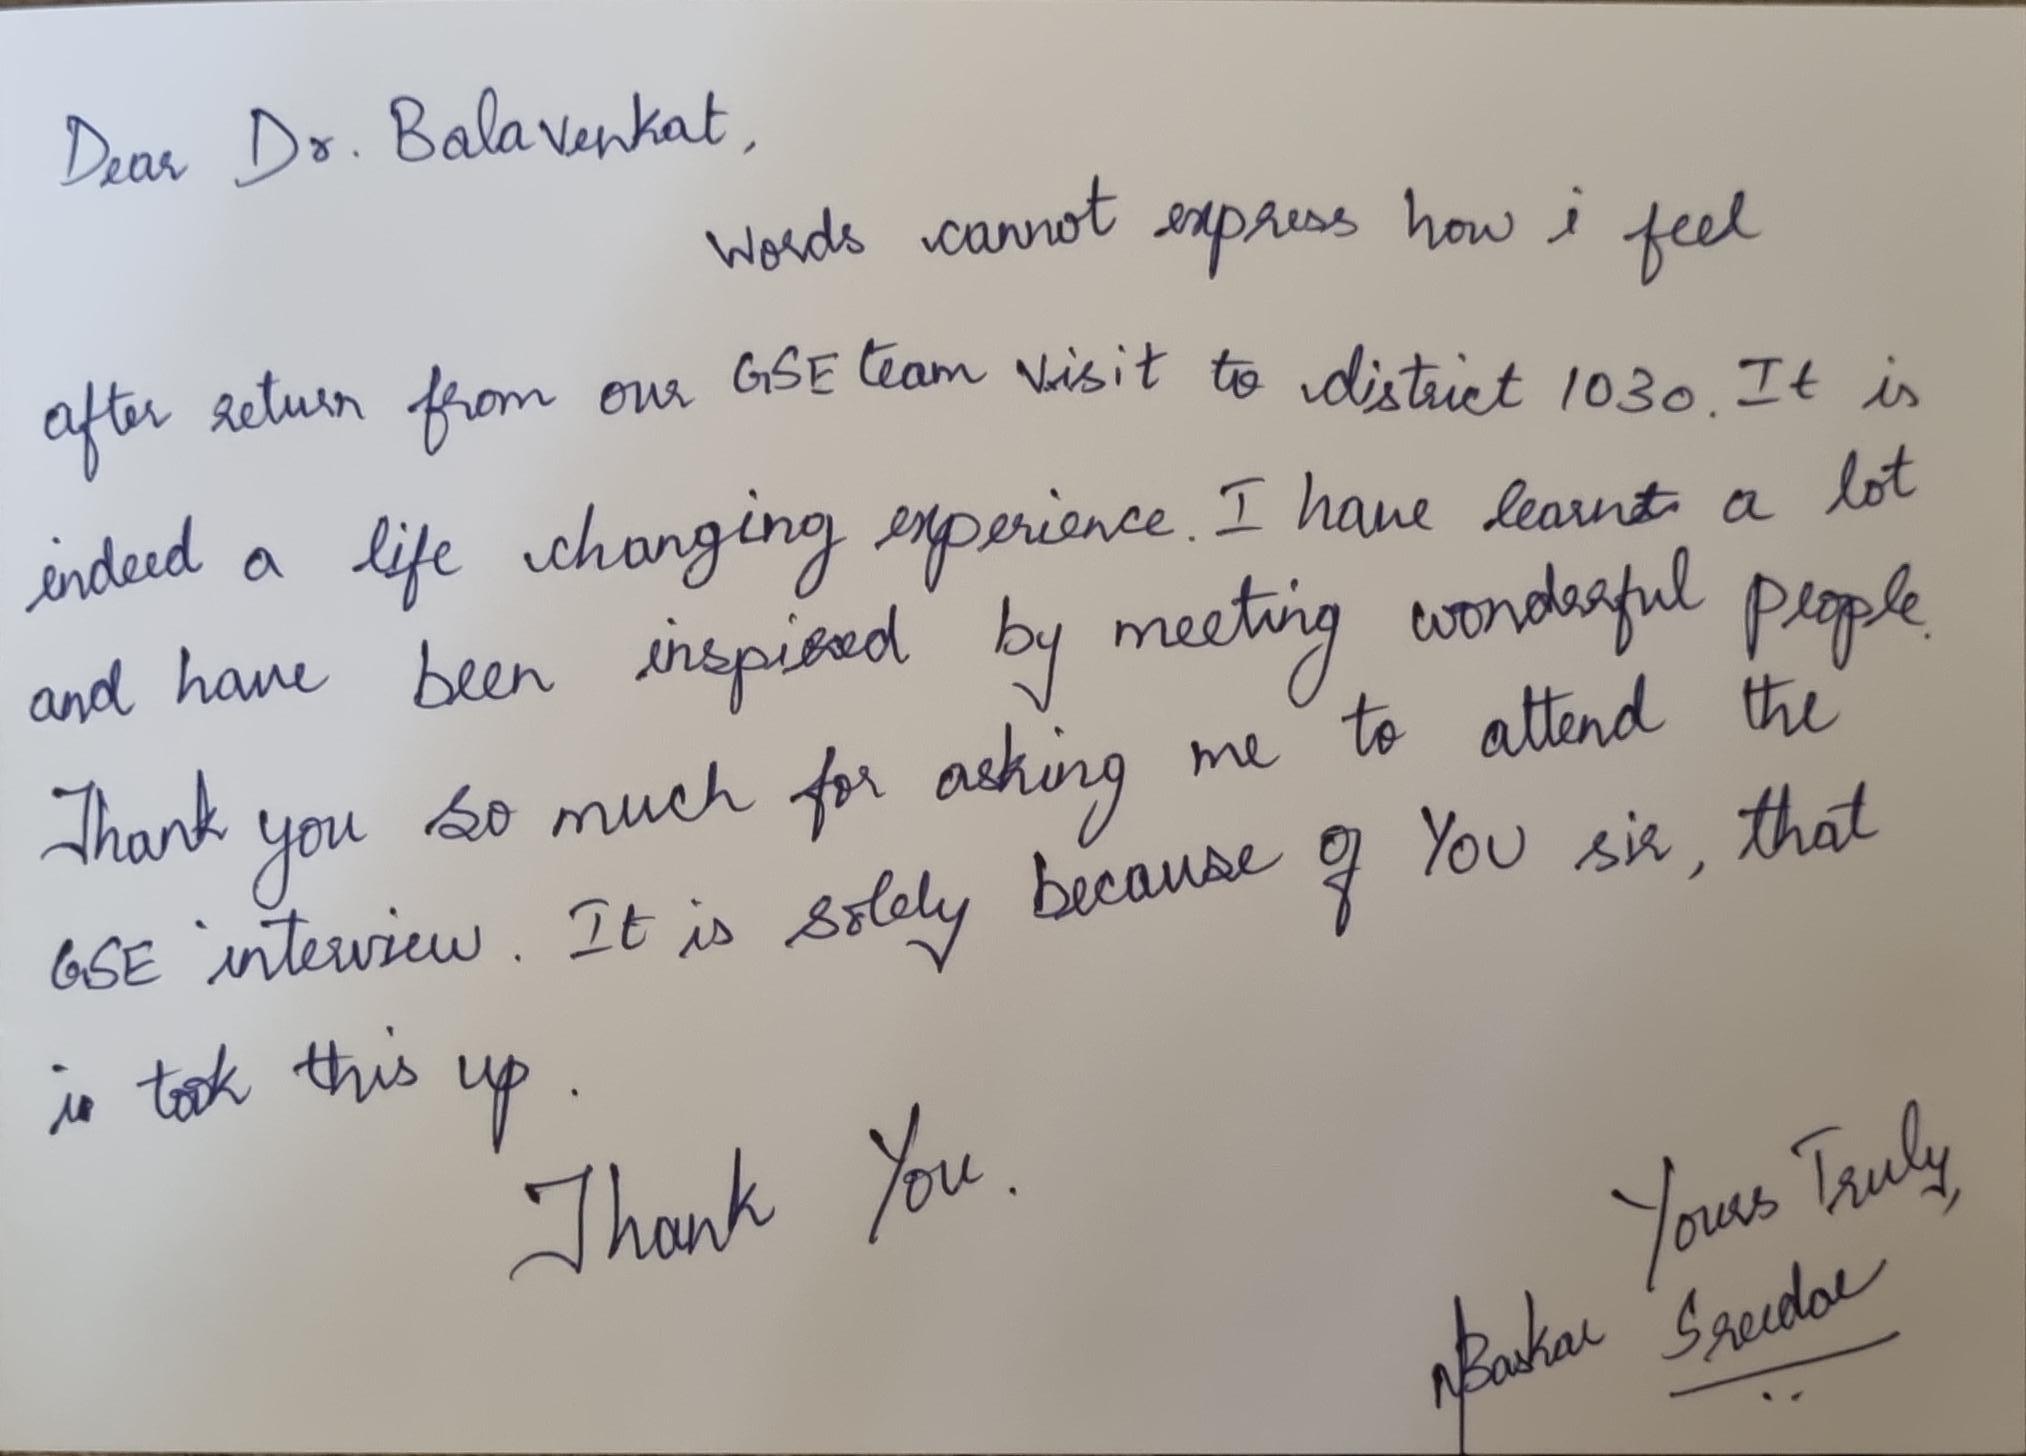 Dear Dr. Balavenkat,
Words cannot express how i feel
after return from our GSE team visit to district 1030. It is
indeed a life changing experience. I have learnt a lot
and have been inspired by meeting wonderful people.
Thank you so much for asking me to attend the
GSE interview. It is solely because of YOU sir, that
took this up.
Thank You.
Yours Truly,
Baskar Sreedar